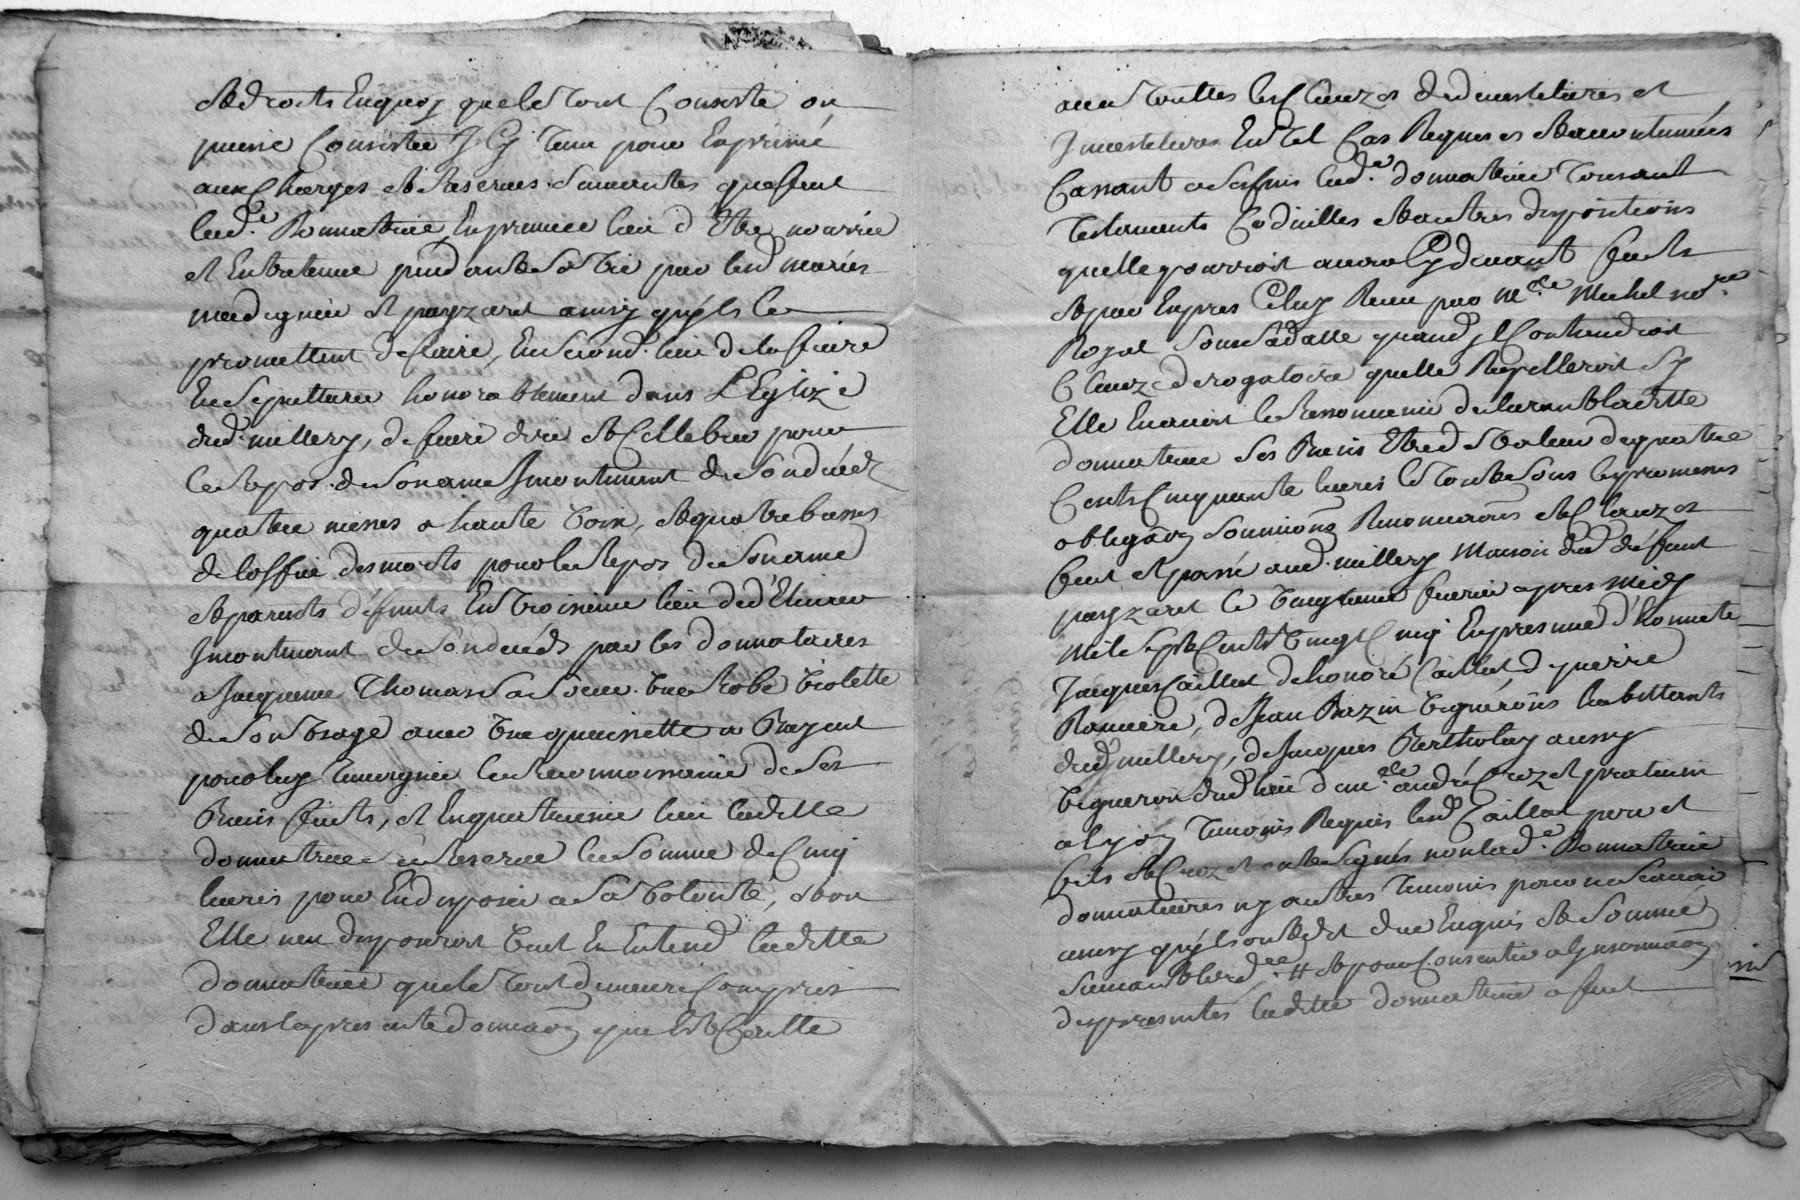 et droits En quoy que le tout Consiste ou
puisse Consister Icy tenu pour Exprimé
aux Charges et Reserves suivantes que seut
lad.e Donnatrice En premier lieu d'Etre nourrie
et Entretenue pendant sa vie par lesd mariés
merdegnie et payzaret ainsy qu'yls le
promettent de faire, En second. lieu de la faire
En sepulturer honnorablement dans L'Eglize
dud. millery, de faire dire et Cellebrer pour
le Repos de son ame Jncontinant de son deceds
quatre messes a haute voix, et quatre basses
de loffice des morts pour le Repos de son ame
et parents deffunts En troisieme lieu de delivrer
Jncontinant de son deceds par les donnataires
a Jacqueme Thomas sa soeur. une Robe violette
de son usage avec une
pour luy temoigner la Reconnoissance de ses
Biens faits, et En quatrieme lieu ladite
donnatrice se Reserve la somme de Cinq
livres pour En disposer a sa volonté, et ou
Elle n'en disposeroit veut Et Entend ladite
donnatrice que le tout demeure Compris
dans la presente donnaon que Est faitte
avec touttes les Clauzes de devestitures et
Jnvestitures En tel Cas Requises et accoutumées
Cassant a ses fins lad.e donnatrice tousant
Testaments Codicilles et autres dispositions
quelle pourroit avoir Cy devant faits
et par Exprès Celuy Receu par M.e Michel no.re
Royal sous sa datte quand yl Contiendroit
Clauze derogatoire quelle Repelleroit sy
Elle En avoit la Ressouvenir declarant ladite
donnatrice ses Biens Etre de valleur de quatre
Cents Cinquante livres le tout sous les promesses
obligaon soumissions Renonciaons et Clauzes
fait et passé aud. millery Maison dud deffunt
payzaret le vingtieme fevrier apres midy
mil sept Cents vingt Cinq En presence d'honnete
Jacques Caillat de honoré Caillat, de pierre
Banniere, de Jean Bazin vignerons habittants
dud millery, de Jacques Bartholay aussy
vigneron dud lieu d'me.e andré Crozet praticien
a lyon temoins Requis lesd Caillat pere et
fils et Crozet ont signés non lad.e Donnatrice
donnataires ny autres temoins pour ne scavoir
ainsy qu'yls ont dit due Enquis et sommé
# et pour Consentir a lJnsinuaon
des presentes ladite donnatrice a fait